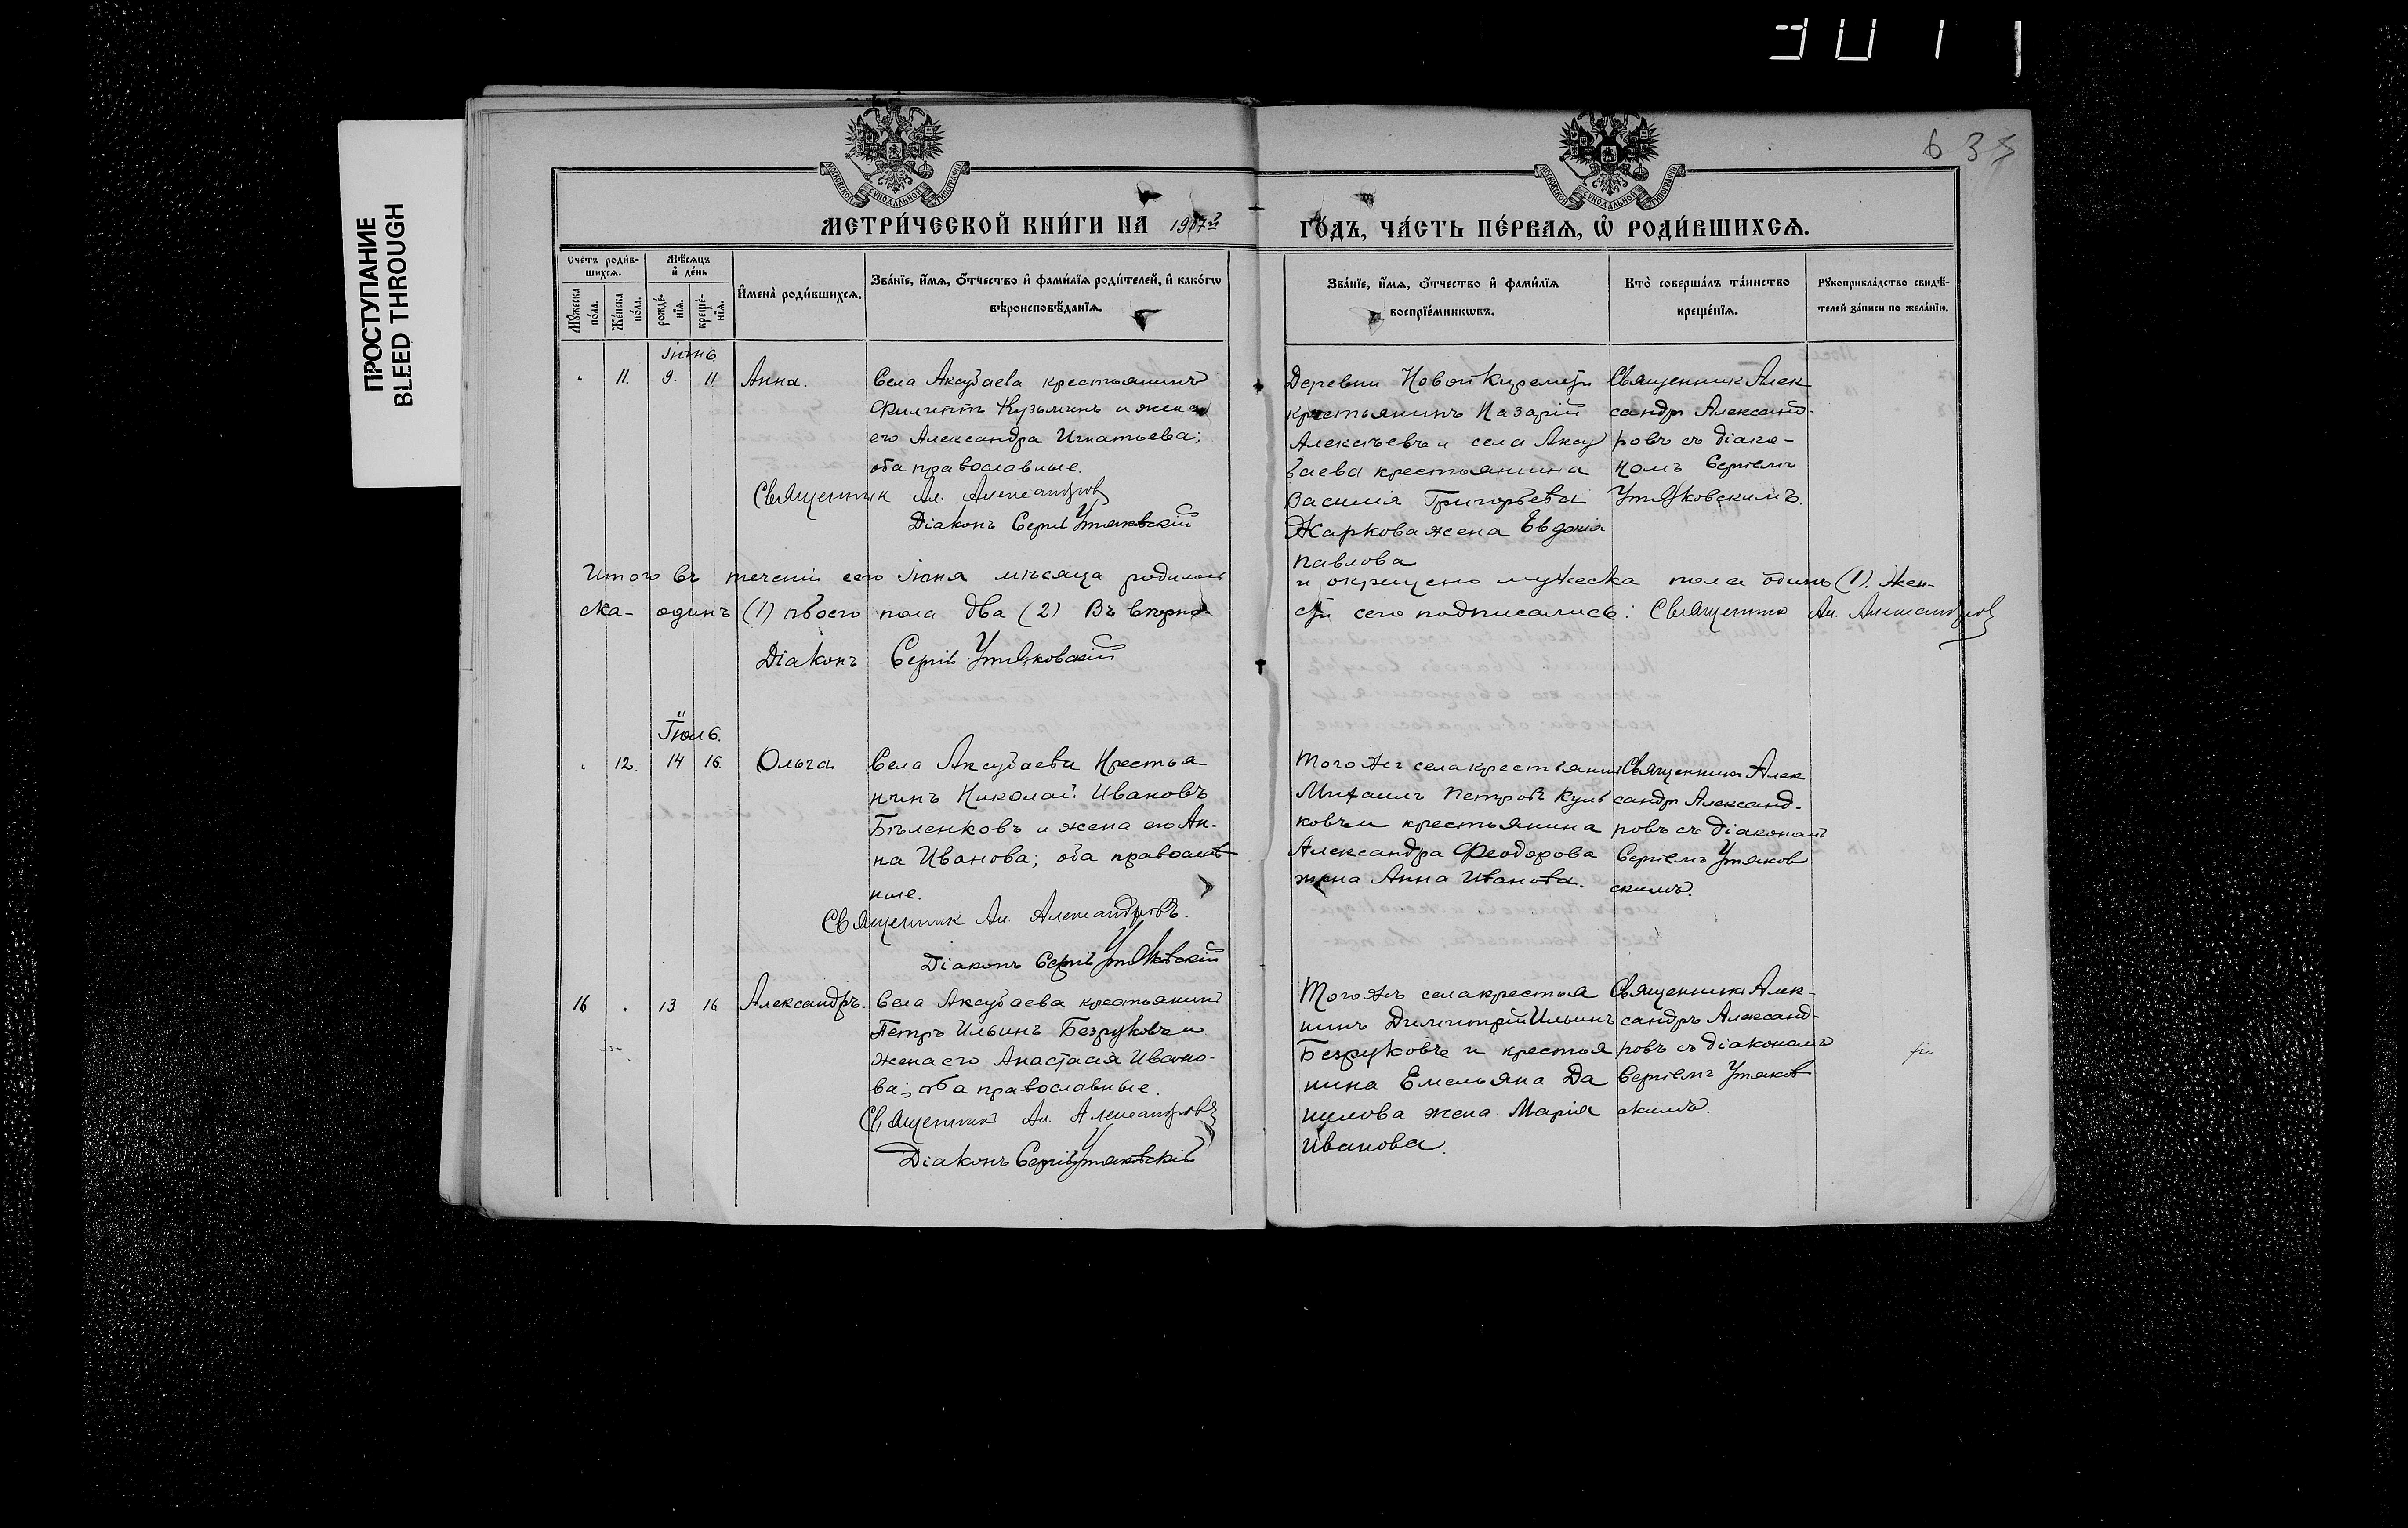 ПРОСТУПАНИЕ
BLEED THROUGH
МОСКОВСКОЙ СѴНОДАЛЬНОЙ ТИПОГРАФІИ
МОСКОВСКОЙ СѴНОДАЛЬНОЙ ТИПОГРАФІИ
МЕТРИ́ЧЕСКОЙ КНИ́ГИ НА 1907
ГО́ДЪ, ЧА́СТЬ ПЕ́РВАѦ, Ѽ РОДИ́ВШИХСѦ.
Сче́тъ роди́в-
шихсѧ.
Мѣ́сѧцъ
и҆ де́нь
Мꙋ́жеска
по́ла.
Же́нска
по́ла.
рожде́-
нїѧ.
креще́-
нїѧ.
И҆мена̀ роди́вшихсѧ.
Зва́нїе, и҆́мѧ, ѻ҆́тчество и҆ фами́лїѧ роди́телей, и҆ како́гѡ
вѣроисповѣ́данїѧ.
Зва́нїе, и҆́мѧ, ѻ҆́тчество и҆ фами́лїѧ
воспрїе́мникѡвъ.
Кто̀ соверша́лъ та́инство
креще́нїѧ.
Рꙋкоприкла́дство свидѣ́-
телей за́писи по жела́нїю.
Іюнь
11. 9. 11 Анна.
Села Аксубаева крестьянинъ
Филиппъ Кузьминъ и жена
его Александра Игнатьева;
оба православные.
Священник Ал. Александров
Діаконъ Сергій Утяковскій
Деревни Новой Киремети
крестьянинъ Назарій
Алексѣевъ и села Аксу
баева крестьянина
Василія Григорьева
Жаркова жена Евдокія
Павлова
Священник Алек
сандр Александ-
ровъ съ діако-
номъ Сергіемъ
Утяковскимъ.
Итого въ теченіи сего Іюня мѣсяца родилось
и окрещено мужеска пола одинъ (1). Жен-
ска- одинъ (1) обоего пола два (2) Въ вѣрно-
сти сего подписались: Священник Ал. Александров
Діаконъ Сергій Утяковскій
Іюль.
12. 14 16. Ольга
Села Аксубаева Крестья
нинъ Николай Ивановъ
Бѣленковъ и жена его Ан-
на Иванова; оба православ
ные.
Священник Ал. Александровъ.
Діаконъ Сергій Утяковскій
Того же села крестьянин
Михаилъ Петровъ
крестьянина
Александра Феодорова
жена Анна Иванова.
Священникъ Алек
сандр Александ-
ровъ съ діакономъ
Сергіемъ Утяков
скимъ.
16 13 16 Александръ.
Села Аксубаева крестьянинъ
Петръ Ильинъ Безруковъ и
жена его Анастасія Ивано-
ва; оба православные.
Священник Ал. Александровъ
Діаконъ Сергій Утяковскій
Того жъ села крестья
нинъ Димитрій Ильинъ
Безруковъ и крестья
нина Емельяна Да
нилова жена Марія
Иванова.
Священникъ Алек-
сандръ Александ-
ровъ съ діакономъ
Сергіемъ Утяков
скимъ.